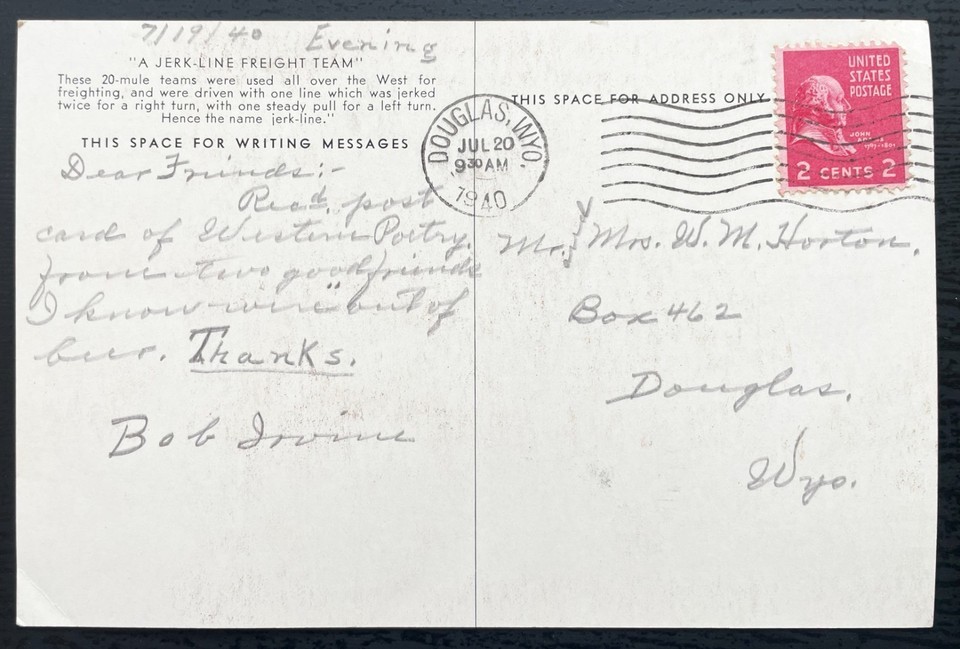 7/19/40 Evening
"A JERK-LINE FREIGHT TEAM"
These 20-mule teams were used all over the West for
freighting, and were driven with one line which was jerked
twice for a right turn, with one steady pull for a left turn.
Hence the name jerk-line."
THIS SPACE FOR WRITING MESSAGES
Dear Friends:-
Recd. post
card of Western Poetry.
from two good friends
I know were "out of
Thanks.
Bob Irvine
DOUGLAS, WYO.
JUL 20
9 30 AM
1940
THIS SPACE FOR ADDRESS ONLY
UNITED
STATES
POSTAGE
JOHN
2 CENTS 2
Mr. & Mrs. W. M. Horton.
Box 462
Douglas.
Wyo.